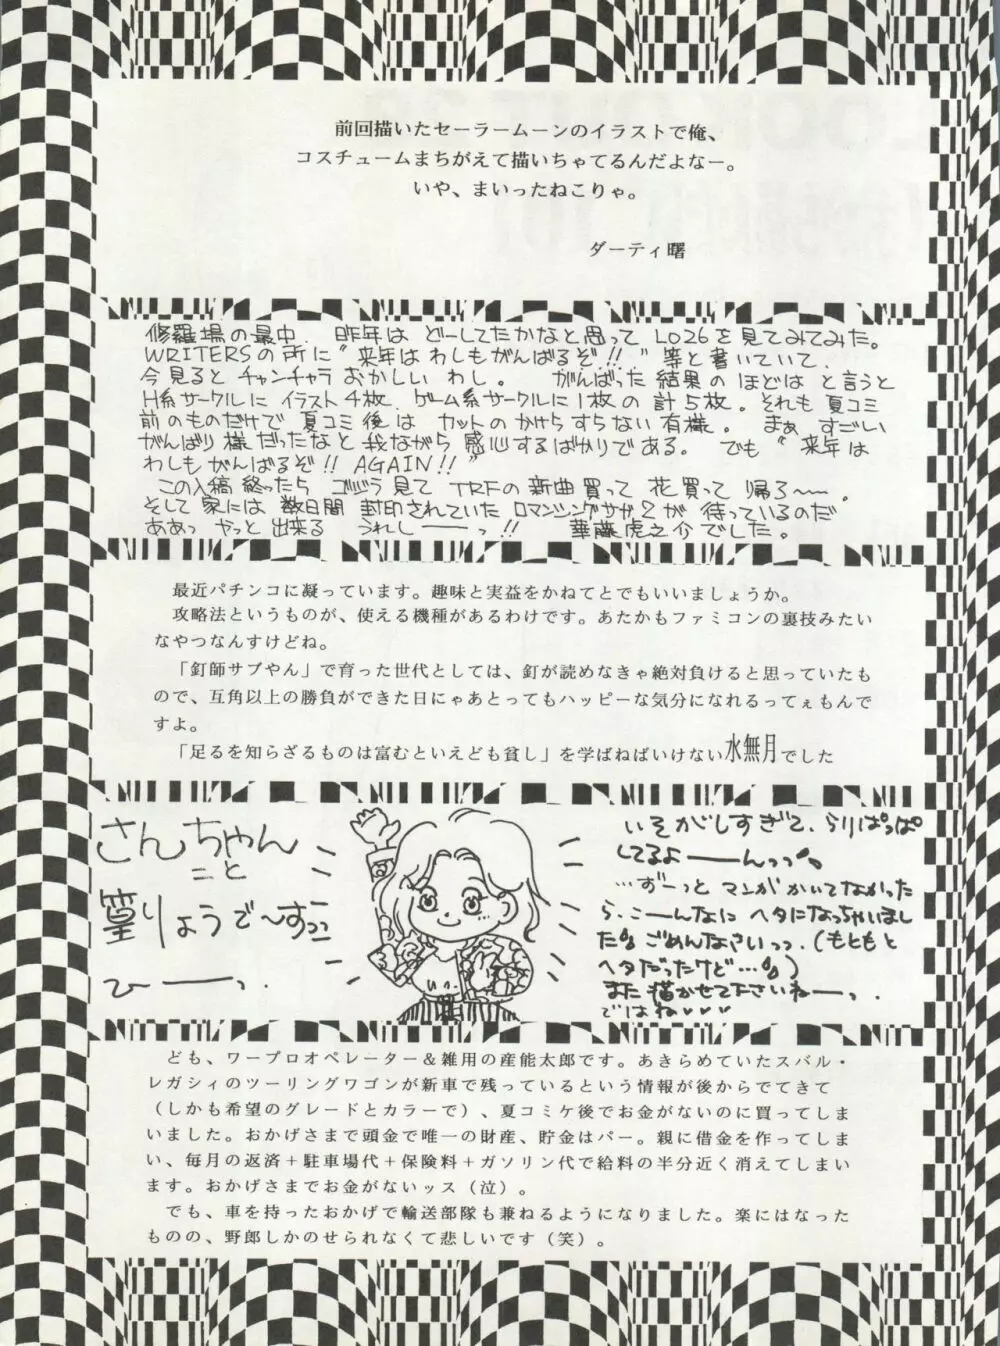 前回描いたセーラームーンのイラストで俺、
コスチュームまちがえて描いちゃてるんだよなー。
いや、まいったねこりゃ。
ダーティ曙
修羅場の最中、昨年は どーしてたかなと思って LO26を見てみてみた。
WRITERSの所に"来年は わしもがんばるぞ!!" 等と書いていて、
今見ると チャンチャラ おかしい わし。 がんばった 結果の ほどは と言うと
H系サークルに イラスト4枚、ゲーム系サークルに1枚の 計5枚。それも 夏コミ
前のものだけで 夏コミ後は カットの かけらすらない有様。 まぁ すごい
がんばり様だったなと 我ながら 感心するばかりである。 でも"来年は
わしもがんばるぞ!! AGAIN!!"
この入稿終ったら ゴジラ見て TRFの新曲買って 花買って 帰ろ〜〜。
そして家には 数日間 封印されていた ロマンシングサガ2が 待っているのだ
ああっ やっと 出来る うれしーーーっ!! 華藤虎之介でした。
最近パチンコに凝っています。趣味と実益をかねてとでもいいましょうか。
攻略法というものが、使える機種があるわけです。あたかもファミコンの裏技みたい
なやつなんすけどね。
「釘師サブやん」で育った世代としては、釘が読めなきゃ絶対負けると思っていたも
ので、互角以上の勝負ができた日にゃあとってもハッピーな気分になれるってぇもんで
すよ。
「足るを知らざるものは富むといえども貧し」を学ばねばいけない水無月でした
さんちゃん
こと
篁りょうで〜すっっ
ひーーっ.
いそがしすぎて、らりぱっぱ
してるよーーんっっ
…ずーっと マンガかいてなかった
ら、こーんなに ヘタになっちゃいまし
た ごめんなさいっっ.(もともと
ヘタだったけど…)
また描かせて下さいねーーっ.
ではね♥♥♥
ども、ワープロオペレーター＆雑用の産能太郎です。あきらめていたスバル・
レガシィのツーリングワゴンが新車で残っているという情報が後からでてきて
（しかも希望のグレードとカラーで）、夏コミケ後でお金がないのに買ってしま
いました。おかげさまで頭金で唯一の財産、貯金はパー。親に借金を作ってしま
い、毎月の返済＋駐車場代＋保険料＋ガソリン代で給料の半分近く消えてしまい
ます。おかげさまでお金がないッス（泣）。
でも、車を持ったおかげで輸送部隊も兼ねるようになりました。楽にはなった
ものの、野郎しかのせられなくて悲しいです（笑）。